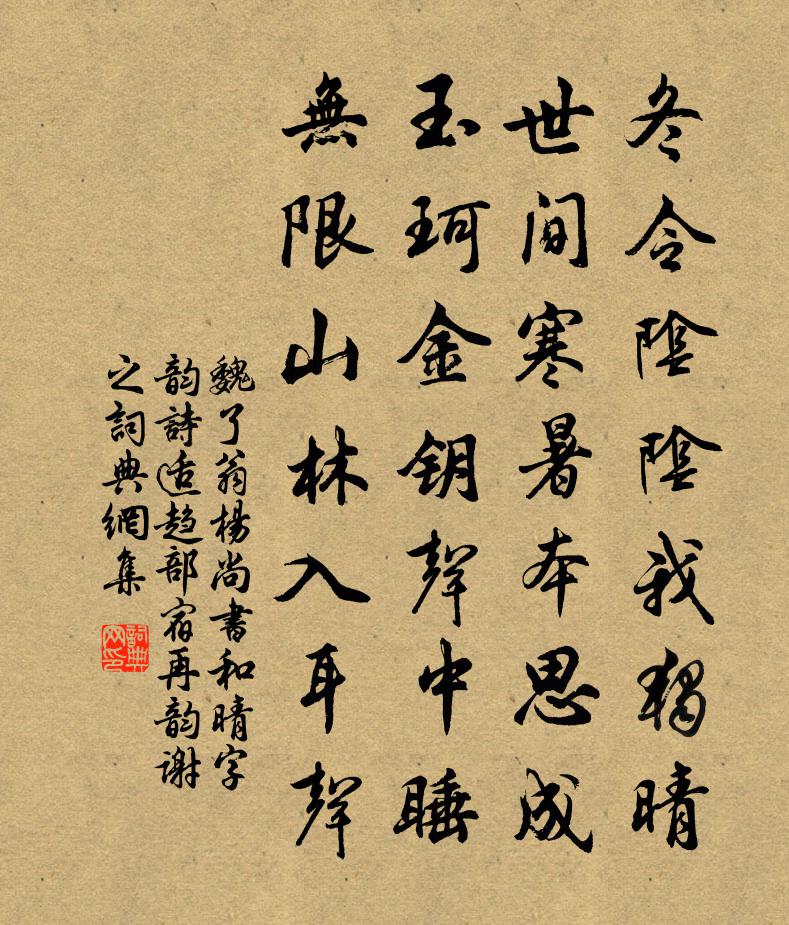 冬令陰陰我獨晴
世間寒暑本思成
玉珂金钥聲中睡
無限山林入耳聲
魏了翁楊尚書和晴字
韵詩适趋部宿再韵谢
之詞典網集
詞典网印